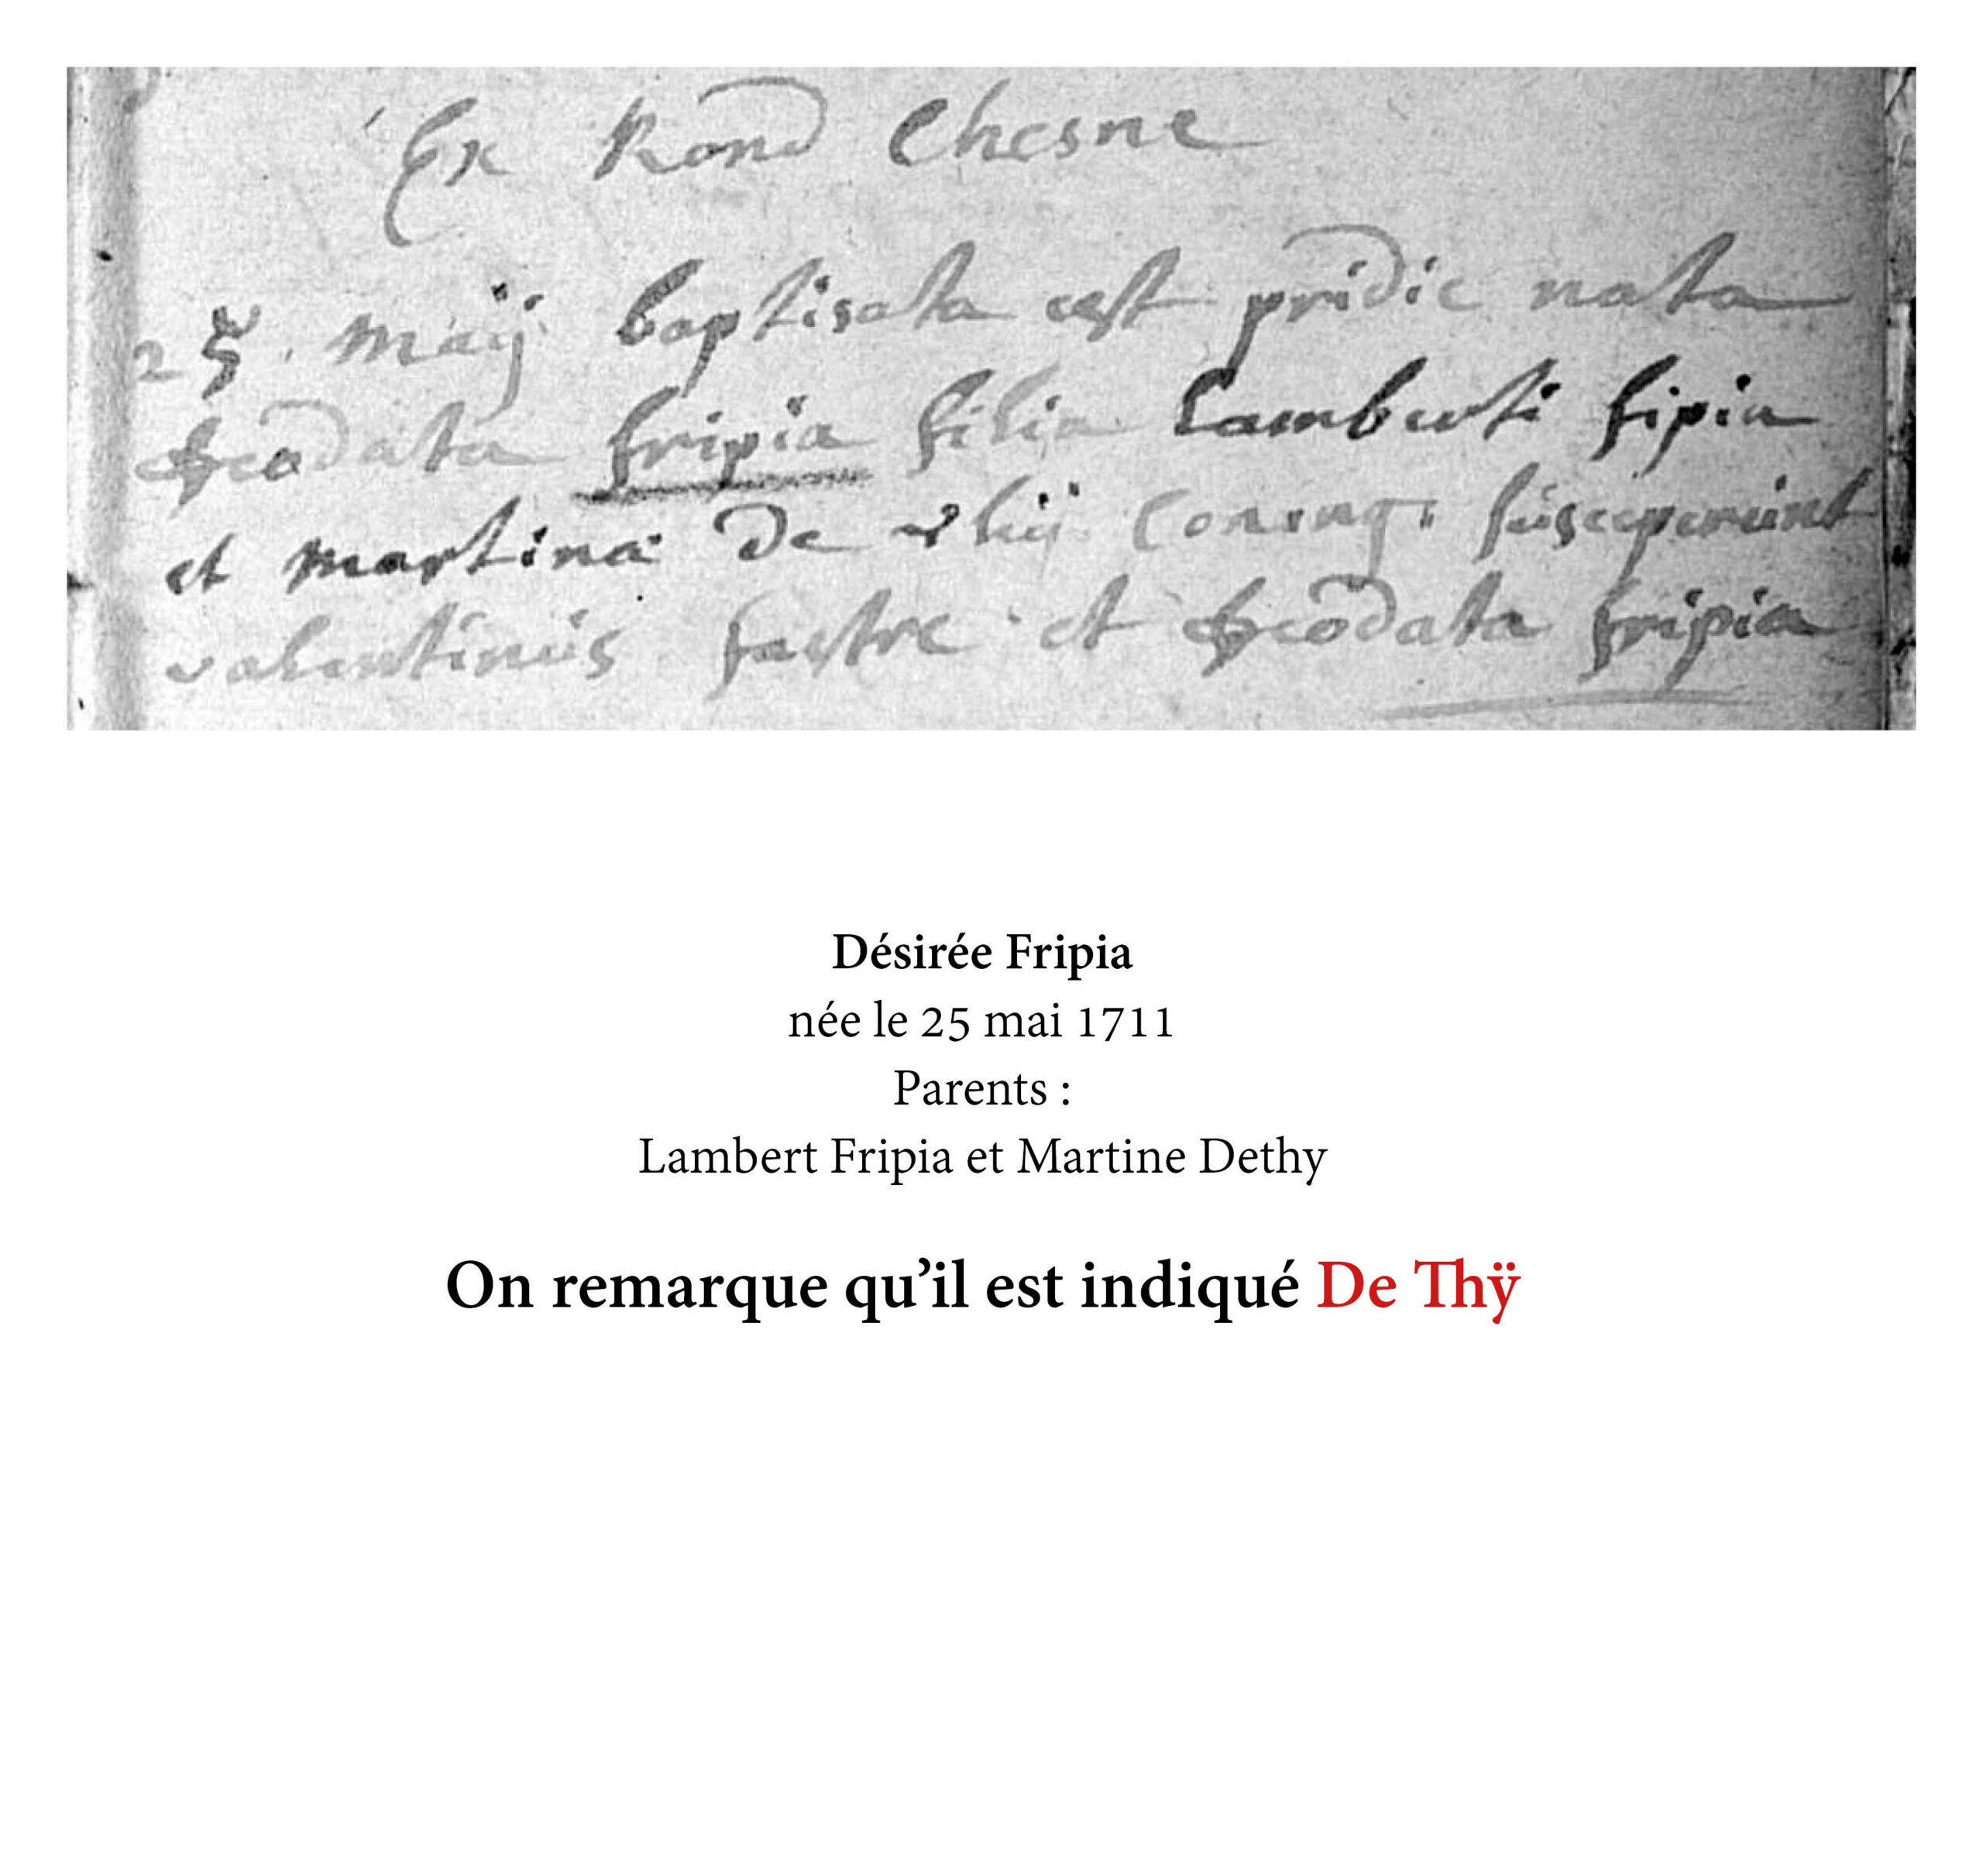 Ex Rond Chesne
25. maij baptisata est pridie nata
deodata fripia filia Lamberti fipia
et martina de thij Coniug. susceperunt
valentinus fastre et deodata fripia
Désirée Fripia
née le 25 mai 1711
Parents :
Lambert Fripia et Martine Dethy
On remarque qu’il est indiqué De Thÿ